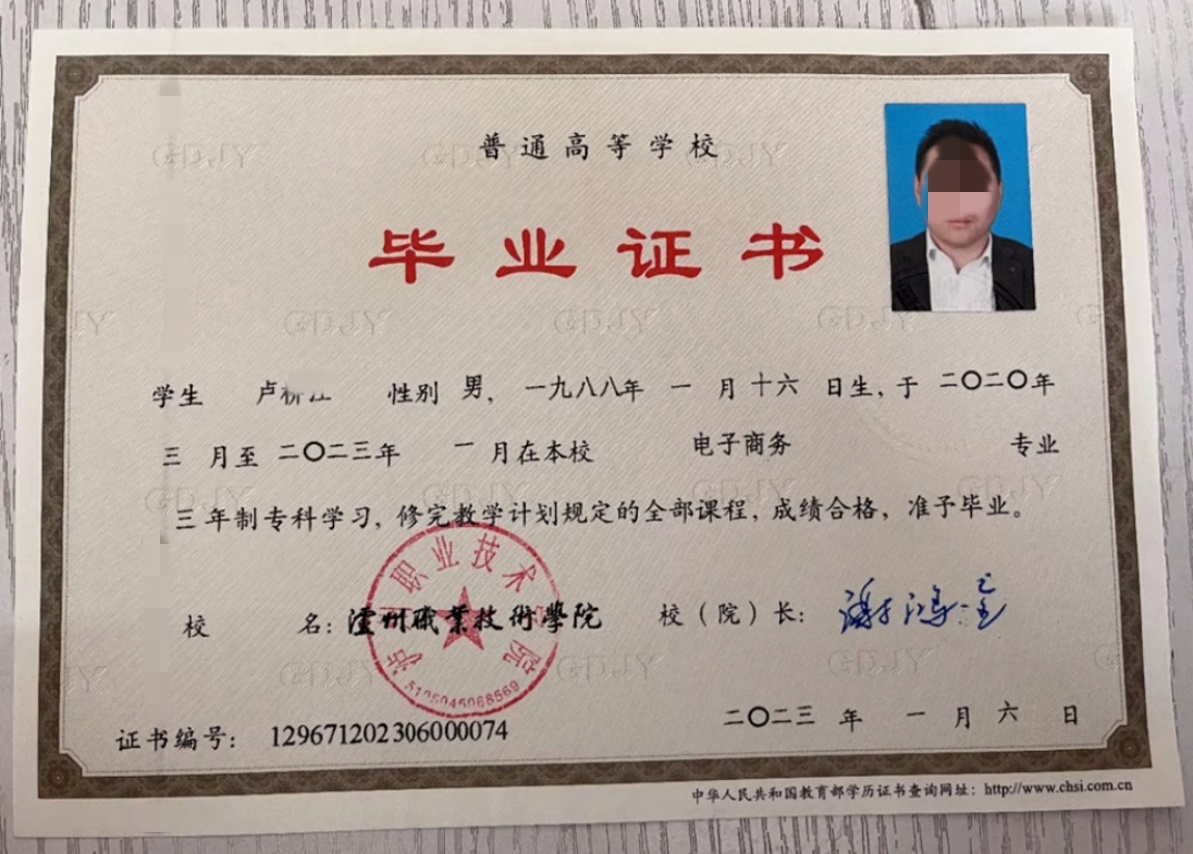 普通高等学校
毕业证书
学生 卢 性别 男，一九八八年 一 月 十六 日生，于 二〇二〇年
三 月至 二〇二三年 一 月在本校 电子商务 专业
三 年制专科学习，修完教学计划规定的全部课程，成绩合格，准予毕业。
职业技术
5105045068569
校 名：瀘州職業技術學院 校（院）长：谢鸿全
证书编号：129671202306000074
二〇二三 年 一 月 六 日
中华人民共和国教育部学历证书查询网址：http://www.chsi.com.cn
GDJY